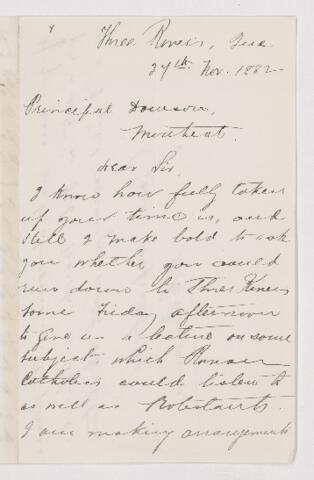 Three Rivers, Que.
27th Nov. 1882
Principal Dawson,
Montreal.
Dear Sir,
I know how fully taken
up your time is, and
still I make bold to ask
you whether you could
run down to Three Rivers
some Friday afternoon
to give us a lecture on some
subject which Roman
Catholics could listen to
as well as Protestants.
I am making arrangements